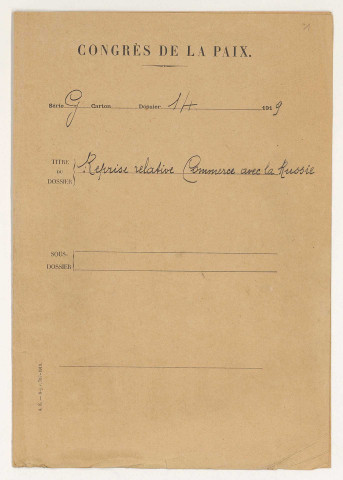 CONGRÈS DE LA PAIX.
Série G Carton Dossier 14 1919
TITRE DU DOSSIER Reprise relative Commerce avec la Russie
SOUS-DOSSIER